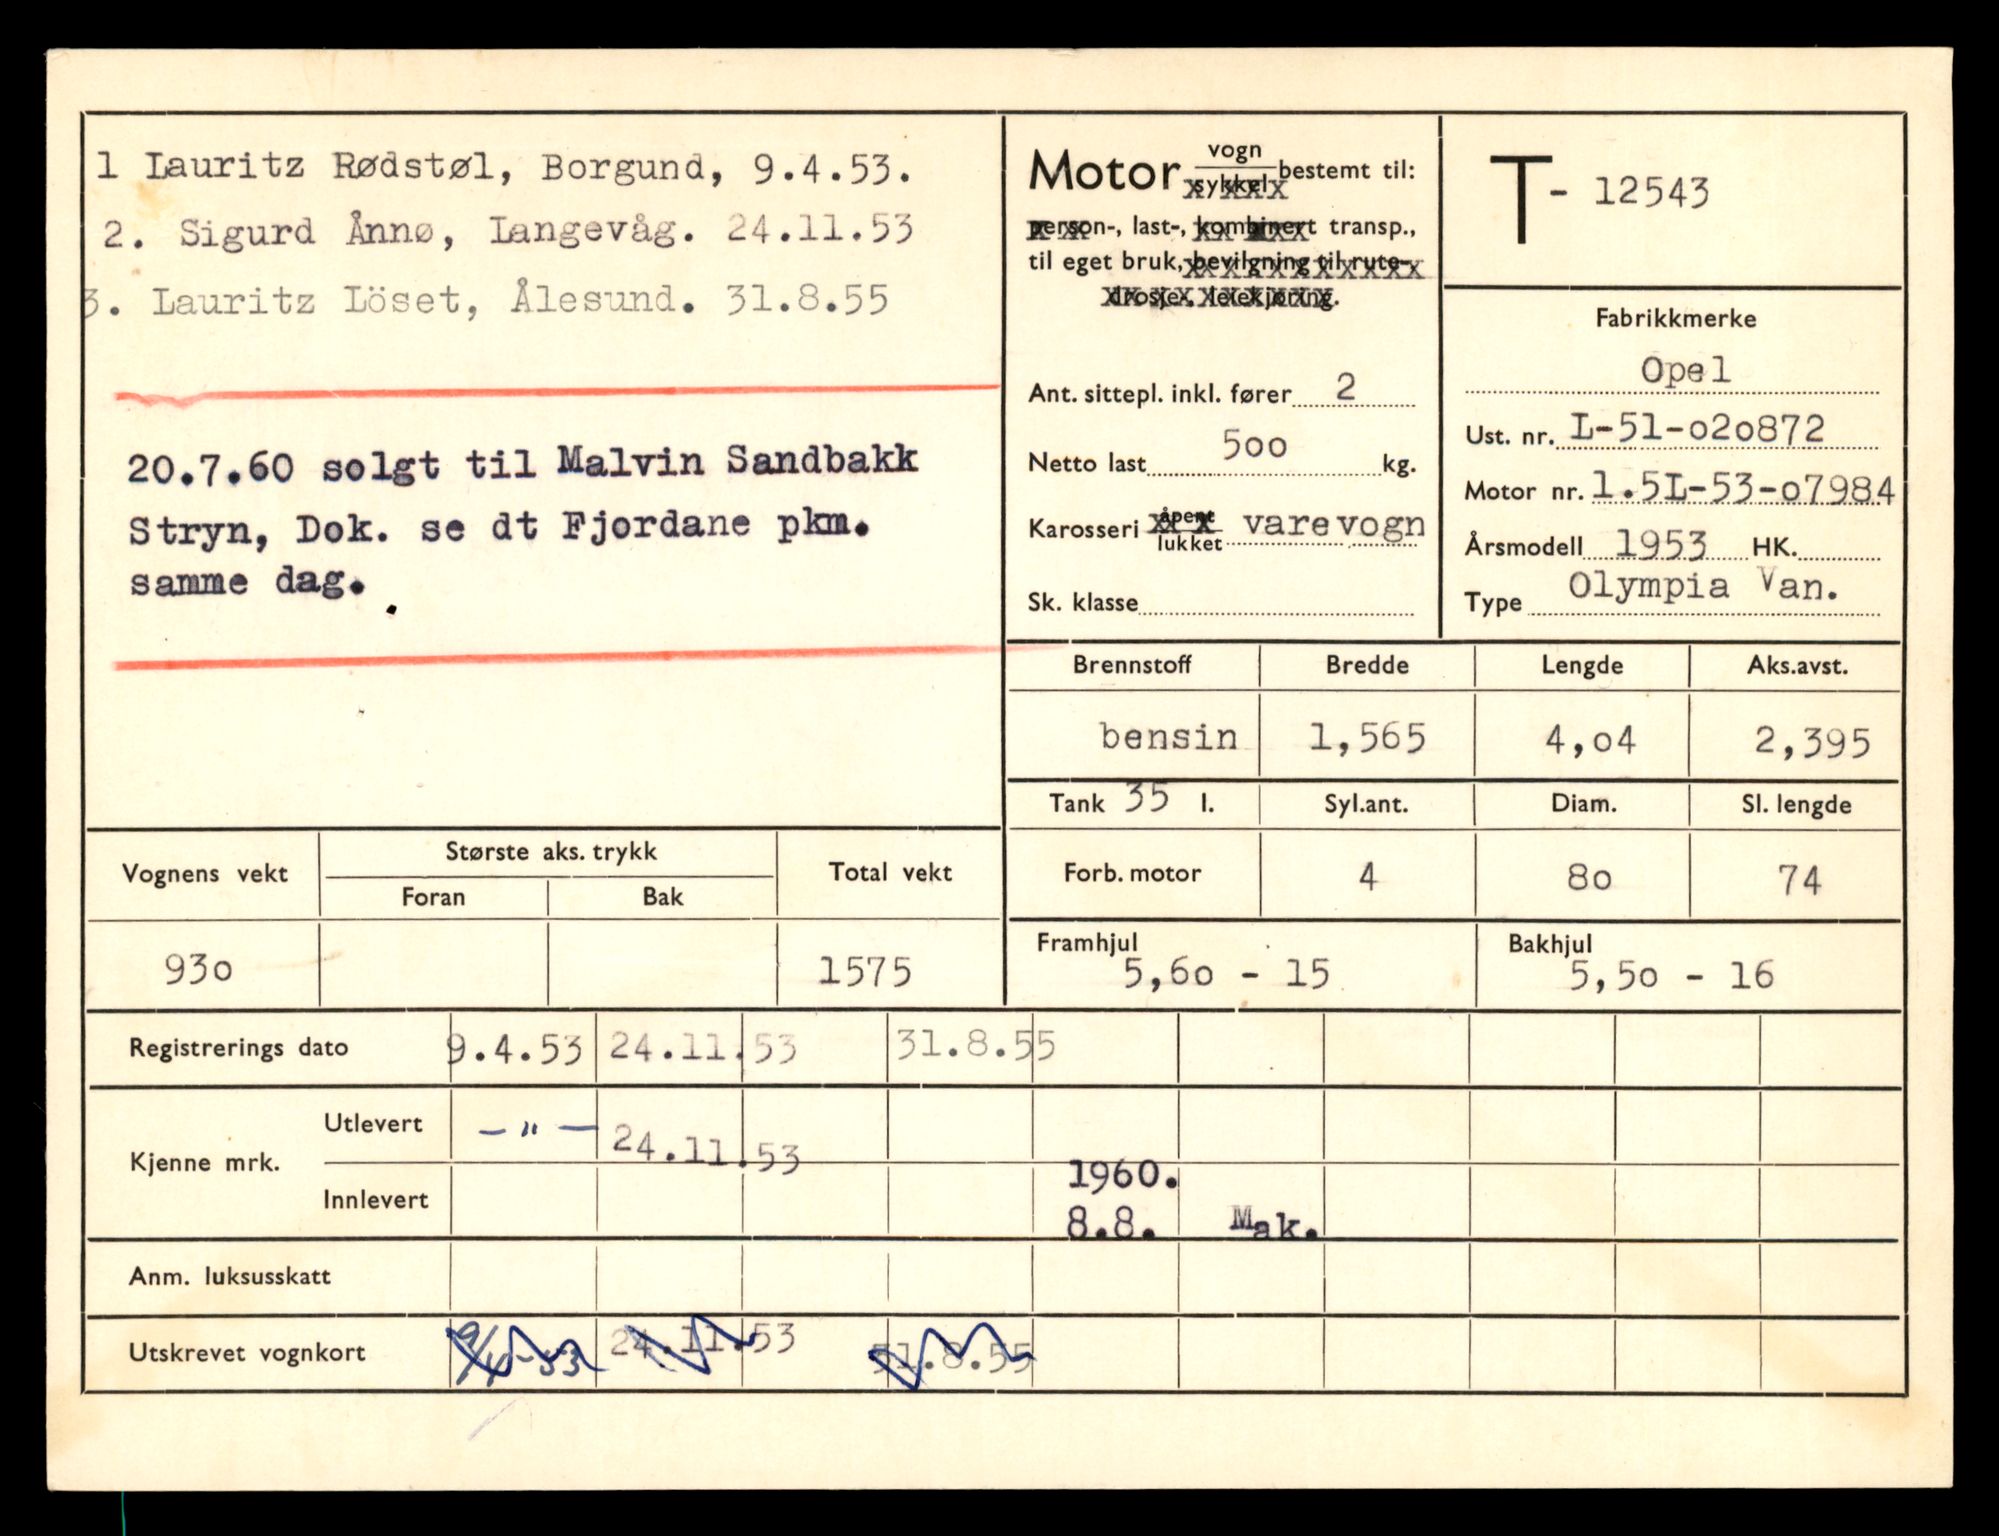 1 Lauritz Rødstøl, Borgund, 9.4.53.
2. Sigurd Ånnø, Langevåg. 24.11.53
3. Lauritz Löset, Ålesund. 31.8.55
20.7.60 solgt til Malvin Sandbakk
Stryn, Dok. se dt Fjordane pkm.
samme dag.
Motor vogn/sykkel bestemt til:
person-, last-, kombinert transp.,
til eget bruk, bevilgning til rute-
drosje-, leiekjøring.
Ant. sittepl. inkl. fører 2
Netto last 500 kg.
Karosseri åpent/lukket varevogn
Sk. klasse
T- 12543
Fabrikkmerke
Opel
Ust. nr. L-51-020872
Motor nr. 1.5L-53-07984
Årsmodell 1953 HK.
Type Olympia Van.
Brennstoff Bredde Lengde Aks.avst.
bensin 1,565 4,04 2,395
Tank 35 l. Syl.ant. Diam. Sl. lengde
Forb. motor 4 80 74
Framhjul Bakhjul
5,60 - 15 5,50 - 16
Vognens vekt Største aks. trykk Total vekt
Foran Bak
930 1575
Registrerings dato 9.4.53 24.11.53 31.8.55
Kjenne mrk.
Utlevert - " - 24.11.53
Innlevert 1960.
8.8. Mak.
Anm. luksusskatt
Utskrevet vognkort 9/4-53 24.11.53 31.8.55